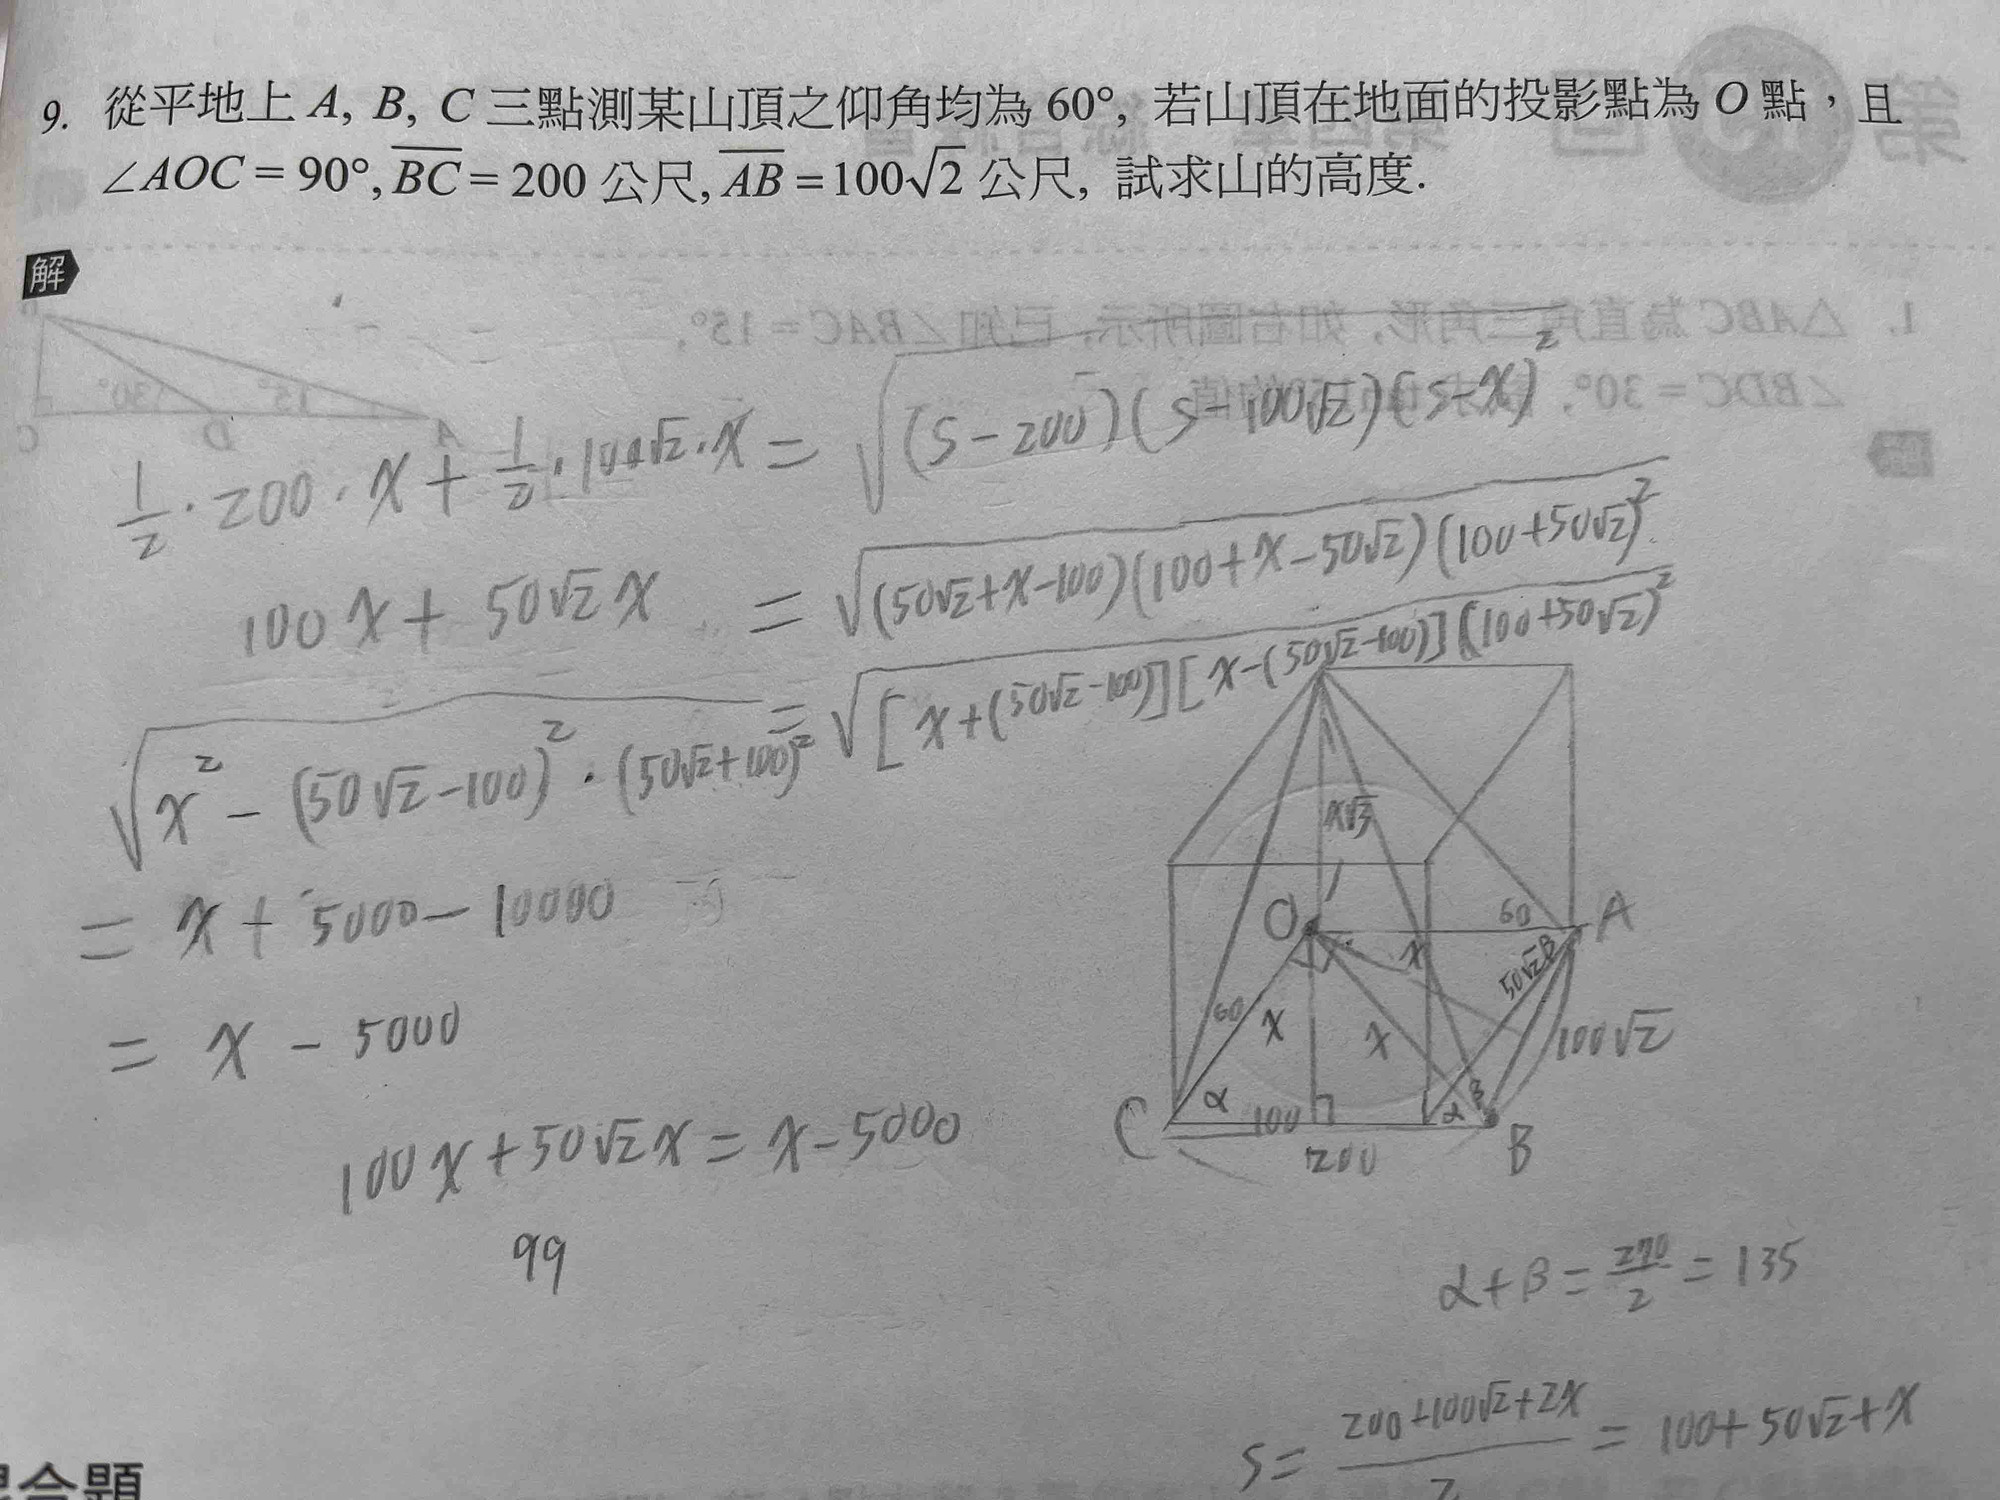 9. 從平地上 A, B, C 三點測某山頂之仰角均為 60°, 若山頂在地面的投影點為 O 點，且
∠AOC = 90°, BC = 200 公尺, AB = 100√2 公尺, 試求山的高度.
解
1/2 · 200 · x + 1/2 · 100√2 · x = √(s-200)(s-100√2)(s-x)²
100x + 50√2x = √(50√2+x-100)(100+x-50√2)(100+50√2)²
= √[x+(50√2-100)][x-(50√2-100)](100+50√2)²
√x² - (50√2-100)² · (50√2+100)²
= x + 5000 - 10000
= x - 5000
100x + 50√2x = x - 5000
99
x√3
O
60
A
x
50√2
β
60
x
x
100√2
C
α
100
α
β
200
B
α + β = 270/2 = 135
s = 200+100√2+2x/2 = 100+50√2+x
合題
1. △ABC 為直角三角形, 如右圖所示, 已知∠BAC = 15°,
∠BDC = 30°,
30°
15°
C
D
A